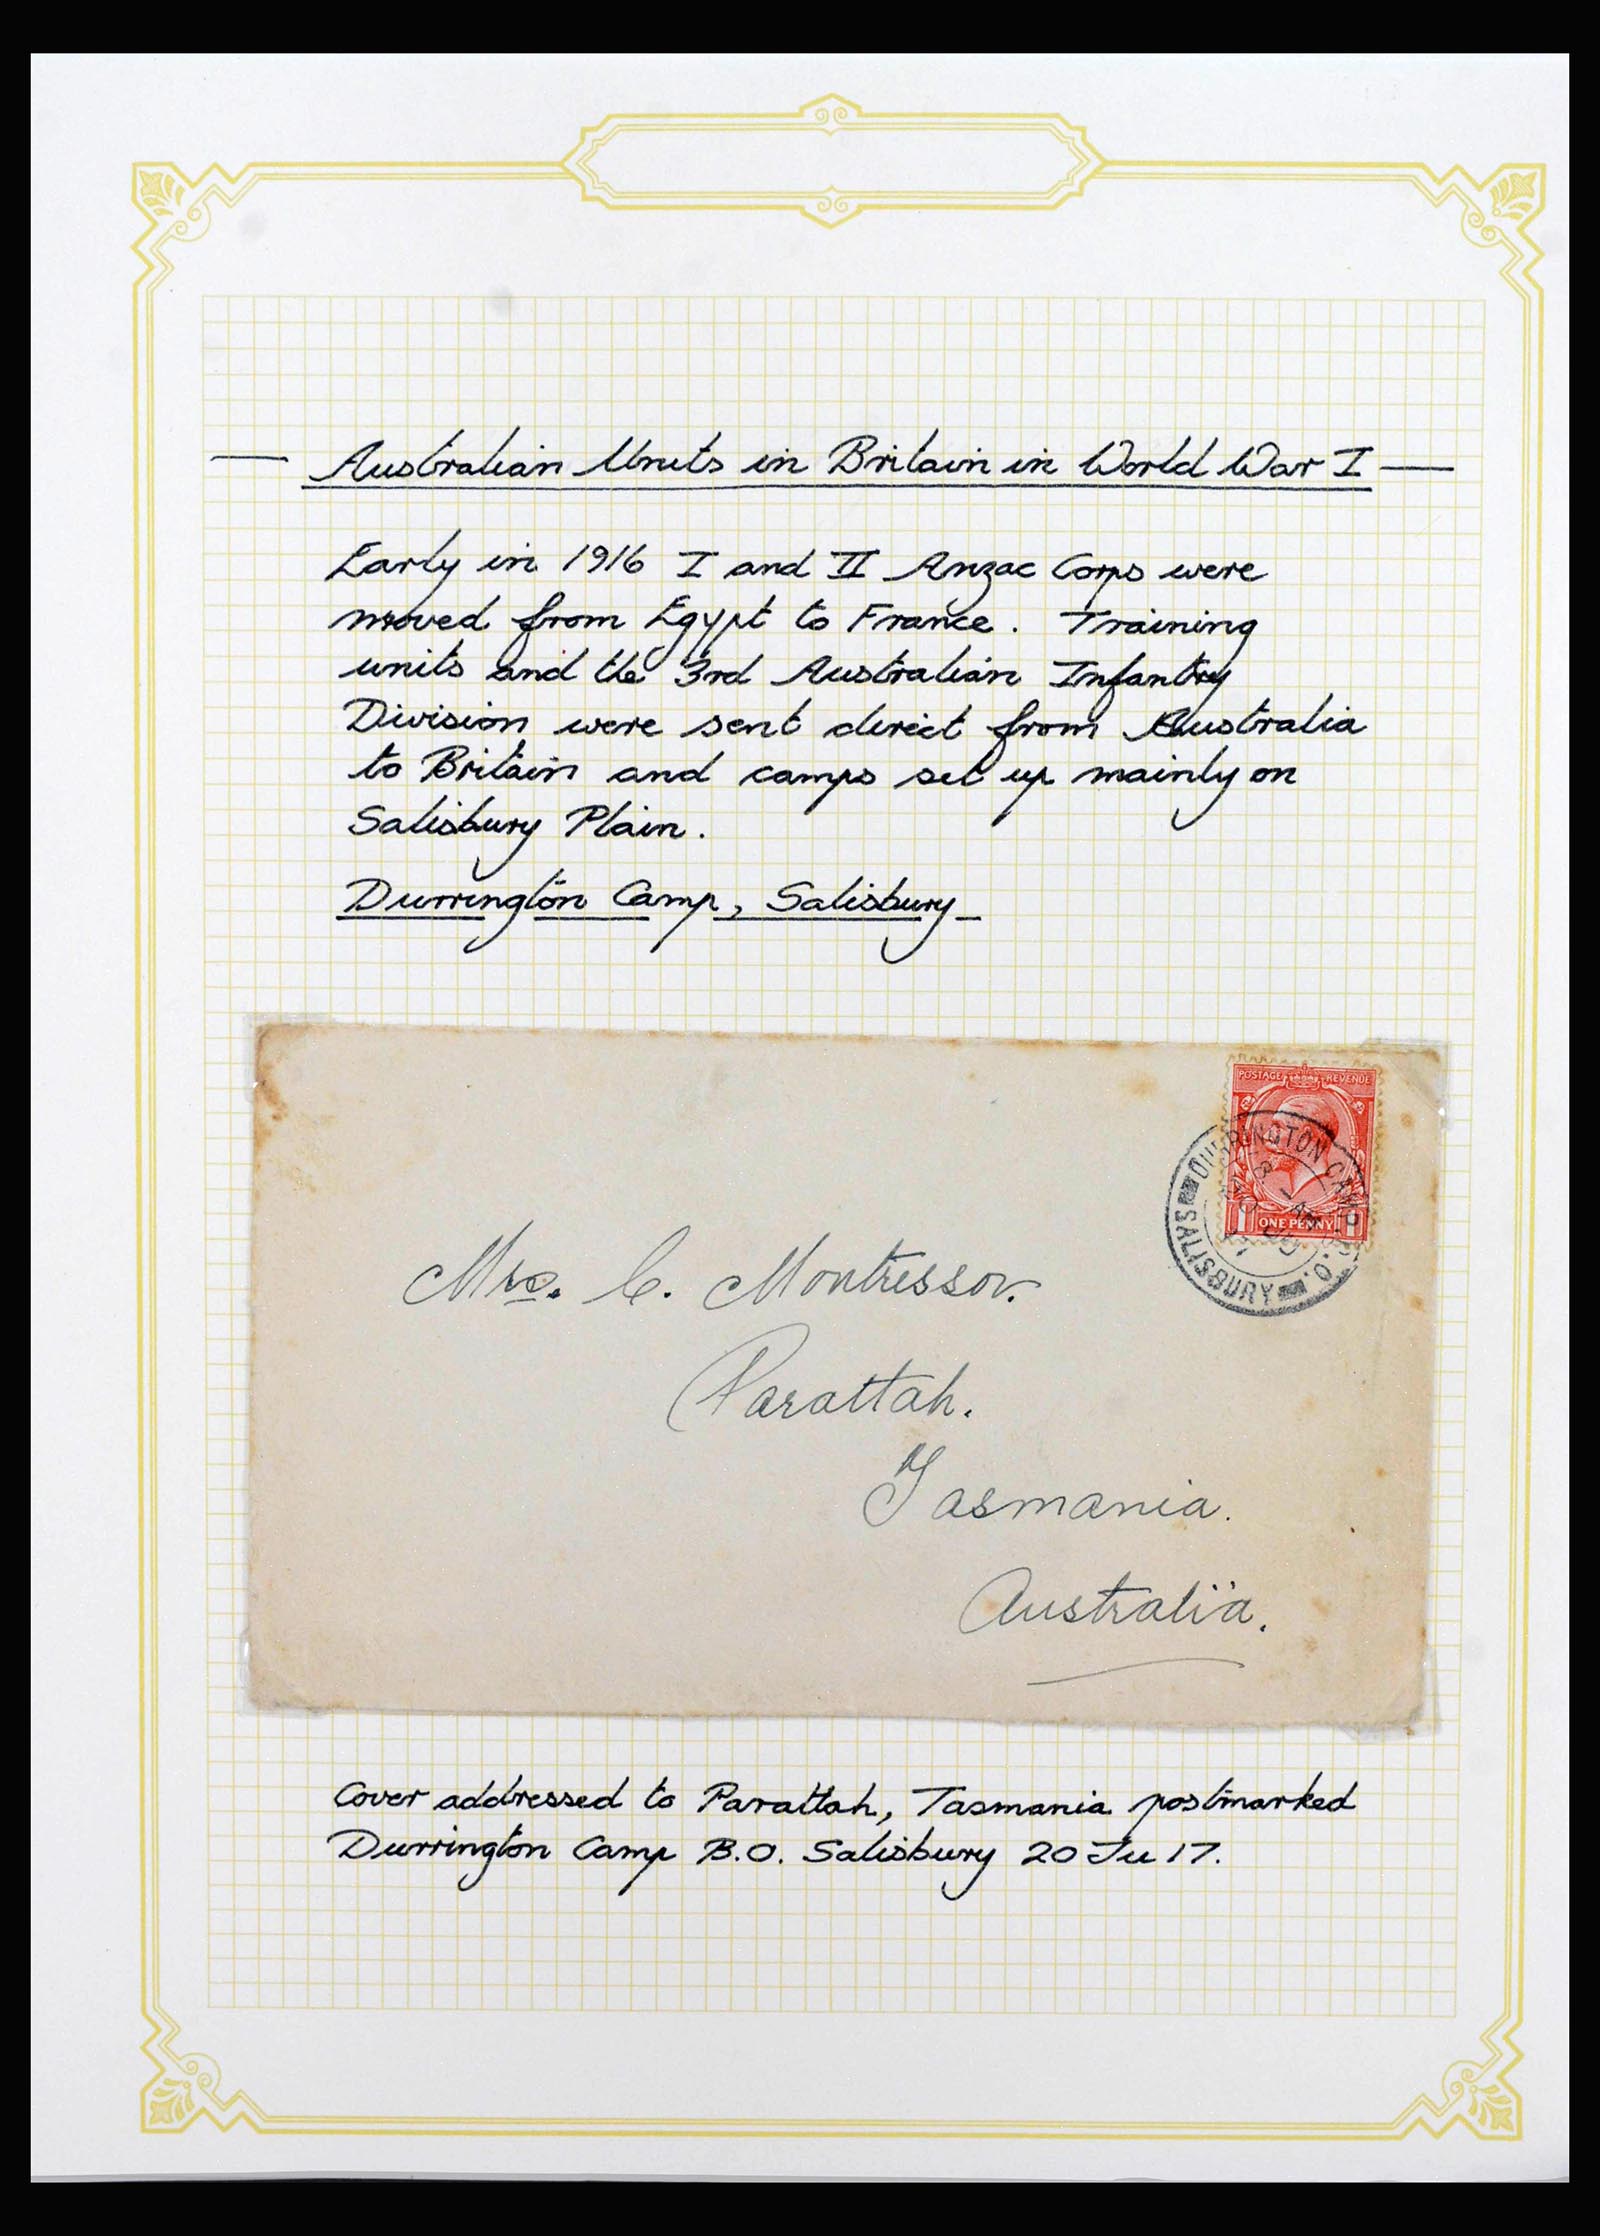 — Australian Units in Britain in World War I —
Early in 1916 I and II Anzac Corps were
moved from Egypt to France. Training
units and the 3rd Australian Infantry
Division were sent direct from Australia
to Britain and camps set up mainly on
Salisbury Plain.
Durrington Camp, Salisbury
POSTAGE REVENUE
DURRINGTON CAMP B.O.
SALISBURY
20 JU
17
ONE PENNY
Mrs. C. Montressor.
Parattah.
Tasmania.
Australia.
Cover addressed to Parattah, Tasmania postmarked
Durrington Camp B.O. Salisbury 20 Ju 17.